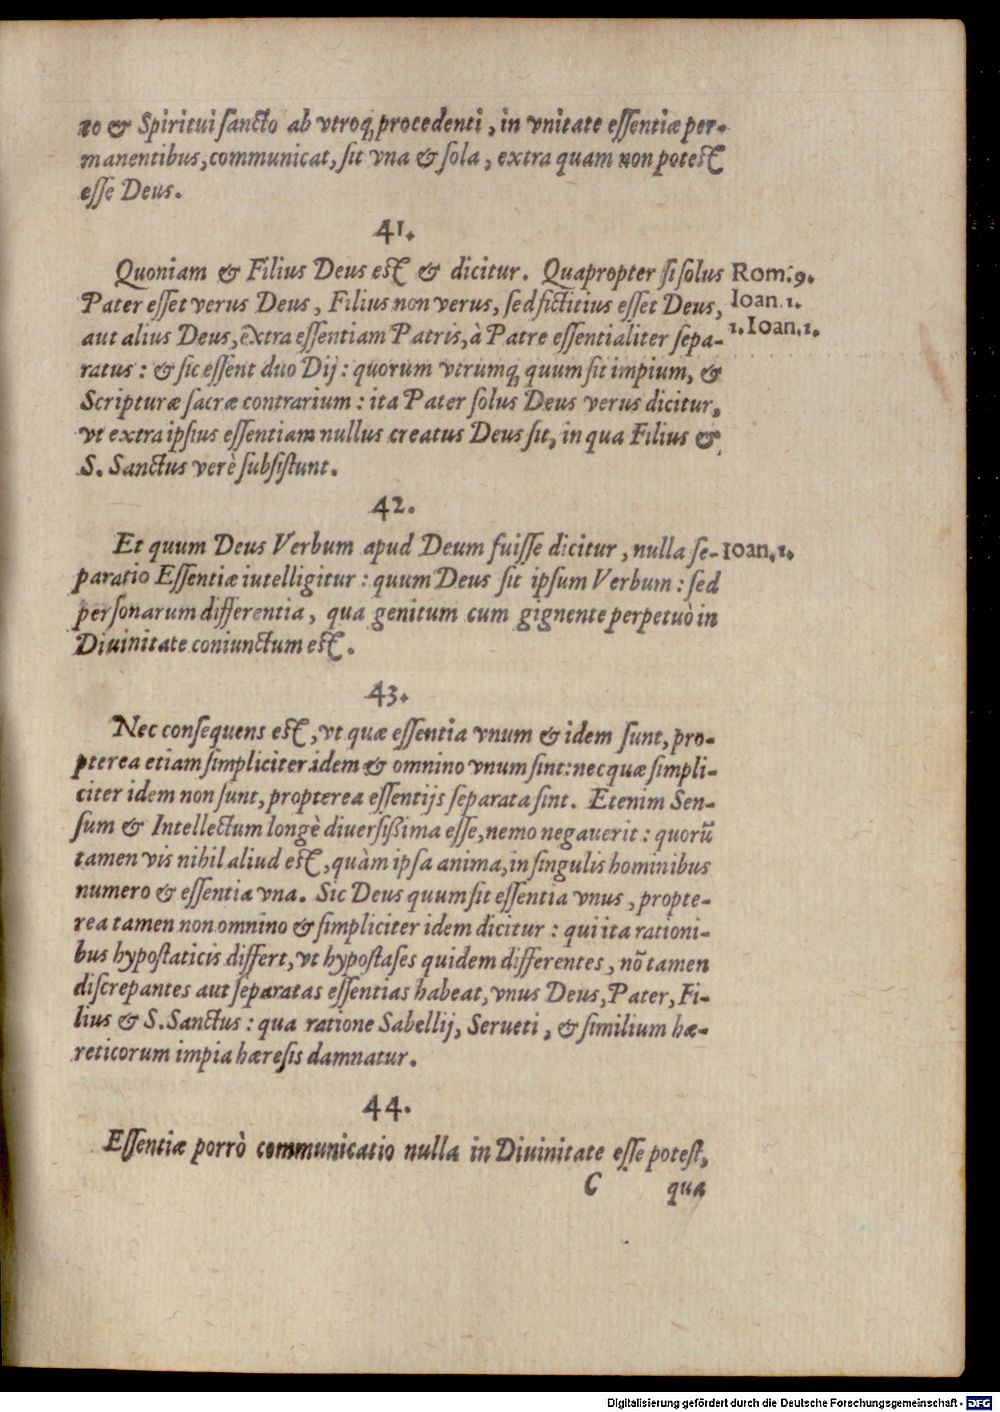 to & Spiritui sancto ab vtroq; procedenti, in vnitate essentiæ per-
manentibus, communicat, sit vna & sola, extra quam non potest
esse Deus.
41.
Quoniam & Filius Deus est & dicitur. Quapropter si solus Rom: 9.
Pater esset verus Deus, Filius non verus, sed fictitius esset Deus, Ioan. 1.
aut alius Deus, extra essentiam Patris, à Patre essentialiter sepa- 1. Ioan. 1.
ratus: & sic essent duo Dij: quorum vtrumq; quum sit impium, &
Scripturæ sacræ contrarium: ita Pater solus Deus verus dicitur,
vt extra ipsius essentiam nullus creatus Deus sit, in qua Filius &
S. Sanctus verè subsistunt.
42.
Et quum Deus Verbum apud Deum fuisse dicitur, nulla se- Ioan. 1.
paratio Essentiæ iutelligitur: quum Deus sit ipsum Verbum: sed
personarum differentia, qua genitum cum gignente perpetuò in
Diuinitate coniunctum est.
43.
Nec consequens est, vt quæ essentia vnum & idem sunt, pro-
pterea etiam simpliciter idem & omnino vnum sint: nec quæ simpli-
citer idem non sunt, propterea essentijs separata sint. Etenim Sen-
sum & Intellectum longè diuersißima esse, nemo negauerit: quorū
tamen vis nihil aliud est, quàm ipsa anima, in singulis hominibus
numero & essentia vna. Sic Deus quum sit essentia vnus, propte-
rea tamen non omnino & simpliciter idem dicitur: qui ita rationi-
bus hypostaticis differt, vt hypostases quidem differentes, nō tamen
discrepantes aut separatas essentias habeat, vnus Deus, Pater, Fi-
lius & S. Sanctus: qua ratione Sabellij, Serueti, & similium hæ-
reticorum impia hæresis damnatur.
44.
Essentiæ porrò communicatio nulla in Diuinitate esse potest,
C qua
Digitalisierung gefördert durch die Deutsche Forschungsgemeinschaft - DFG